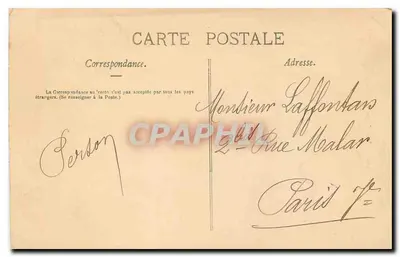 CARTE POSTALE
Correspondance.
Adresse.
La Correspondance au recto n'est pas acceptée par tous les pays
étrangers. (Se renseigner à la Poste.)
Monsieur Laffontan
2 bis Rue Malar
Paris 7e
CPARAMA